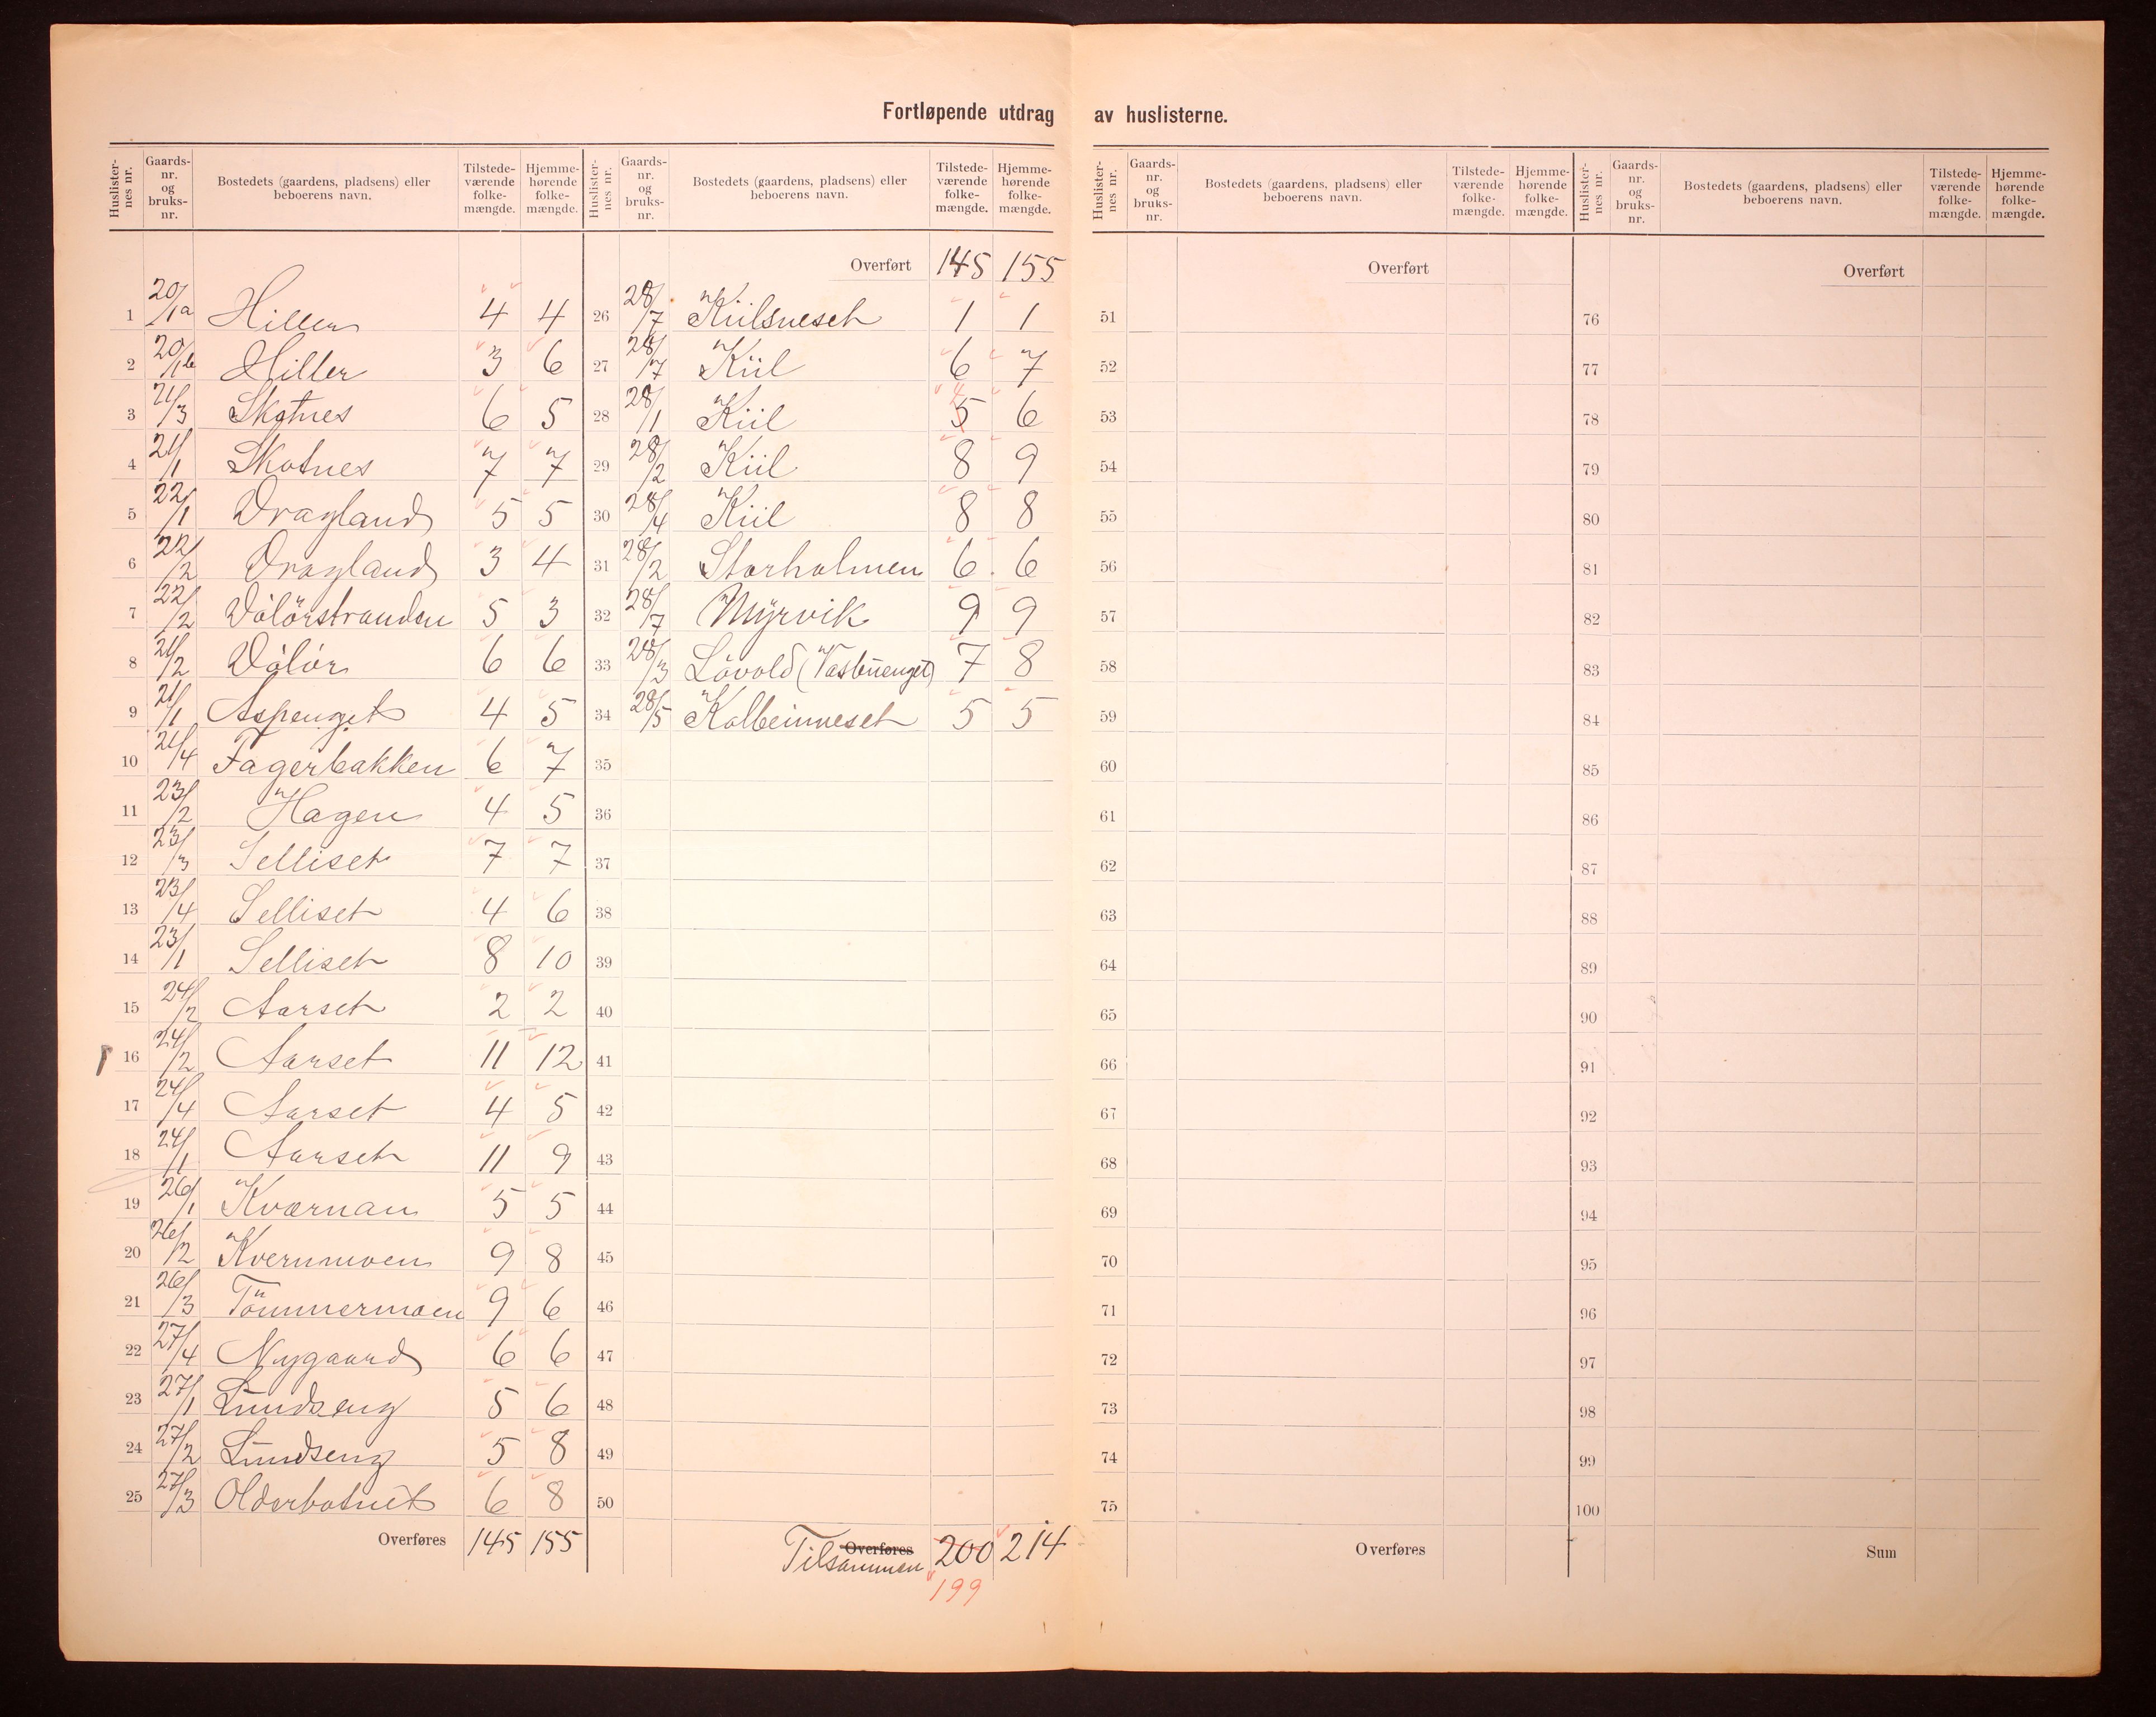 Fortløpende utdrag av huslisterne.
Huslister-nes nr. Gaards-nr. og bruks-nr. Bostedets (gaardens, pladsens) eller beboerens navn. Tilstede-værende folke-mængde. Hjemme-hørende folke-mængde.
1 20/1a Hiller 4 4
2 20/1b Hiller 3 6
3 21/3 Skotnes 6 5
4 21/1 Skotnes 7 7
5 22/1 Dragland 5 5
6 22/2 Dragland 3 4
7 22/2 Valörstranden 5 3
8 21/2 Valör 6 6
9 21/1 Aspenget 4 5
10 21/4 Fagerbakken 6 7
11 23/2 Hagen 4 5
12 23/3 Selliset 7 7
13 23/4 Selliset 4 6
14 23/1 Selliset 8 10
15 24/2 Aarset 2 2
16 24/2 Aarset 11 12
17 24/4 Aarset 4 5
18 24/1 Aarset 11 9
19 26/1 Kværnan 5 5
20 26/2 Kvernmoen 9 8
21 26/3 Tömmermoen 9 6
22 27/4 Nygaard 6 6
23 27/1 Lundseng 5 6
24 27/2 Lundseng 5 8
25 27/3 Olderbotnet 6 8
Overføres 145 155
Huslister-nes nr. Gaards-nr. og bruks-nr. Bostedets (gaardens, pladsens) eller beboerens navn. Tilstede-værende folke-mængde. Hjemme-hørende folke-mængde.
Overført 145 155
26 28/7 Kiilsneset 1 1
27 28/7 Kiil 6 7
28 28/1 Kiil 5 4 6
29 28/2 Kiil 8 9
30 28/4 Kiil 8 8
31 28/2 Storholmen 6 6
32 28/7 Myrvik 9 9
33 28/3 Lövold (Vasbuenget) 7 8
34 28/5 Kolbeinneset 5 5
35
36
37
38
39
40
41
42
43
44
45
46
47
48
49
50
Overføres Tilsammen 200 214
199
Huslister-nes nr. Gaards-nr. og bruks-nr. Bostedets (gaardens, pladsens) eller beboerens navn. Tilstede-værende folke-mængde. Hjemme-hørende folke-mængde.
Overført
51
52
53
54
55
56
57
58
59
60
61
62
63
64
65
66
67
68
69
70
71
72
73
74
75
Overføres
Huslister-nes nr. Gaards-nr. og bruks-nr. Bostedets (gaardens, pladsens) eller beboerens navn. Tilstede-værende folke-mængde. Hjemme-hørende folke-mængde.
Overført
76
77
78
79
80
81
82
83
84
85
86
87
88
89
90
91
92
93
94
95
96
97
98
99
100
Sum